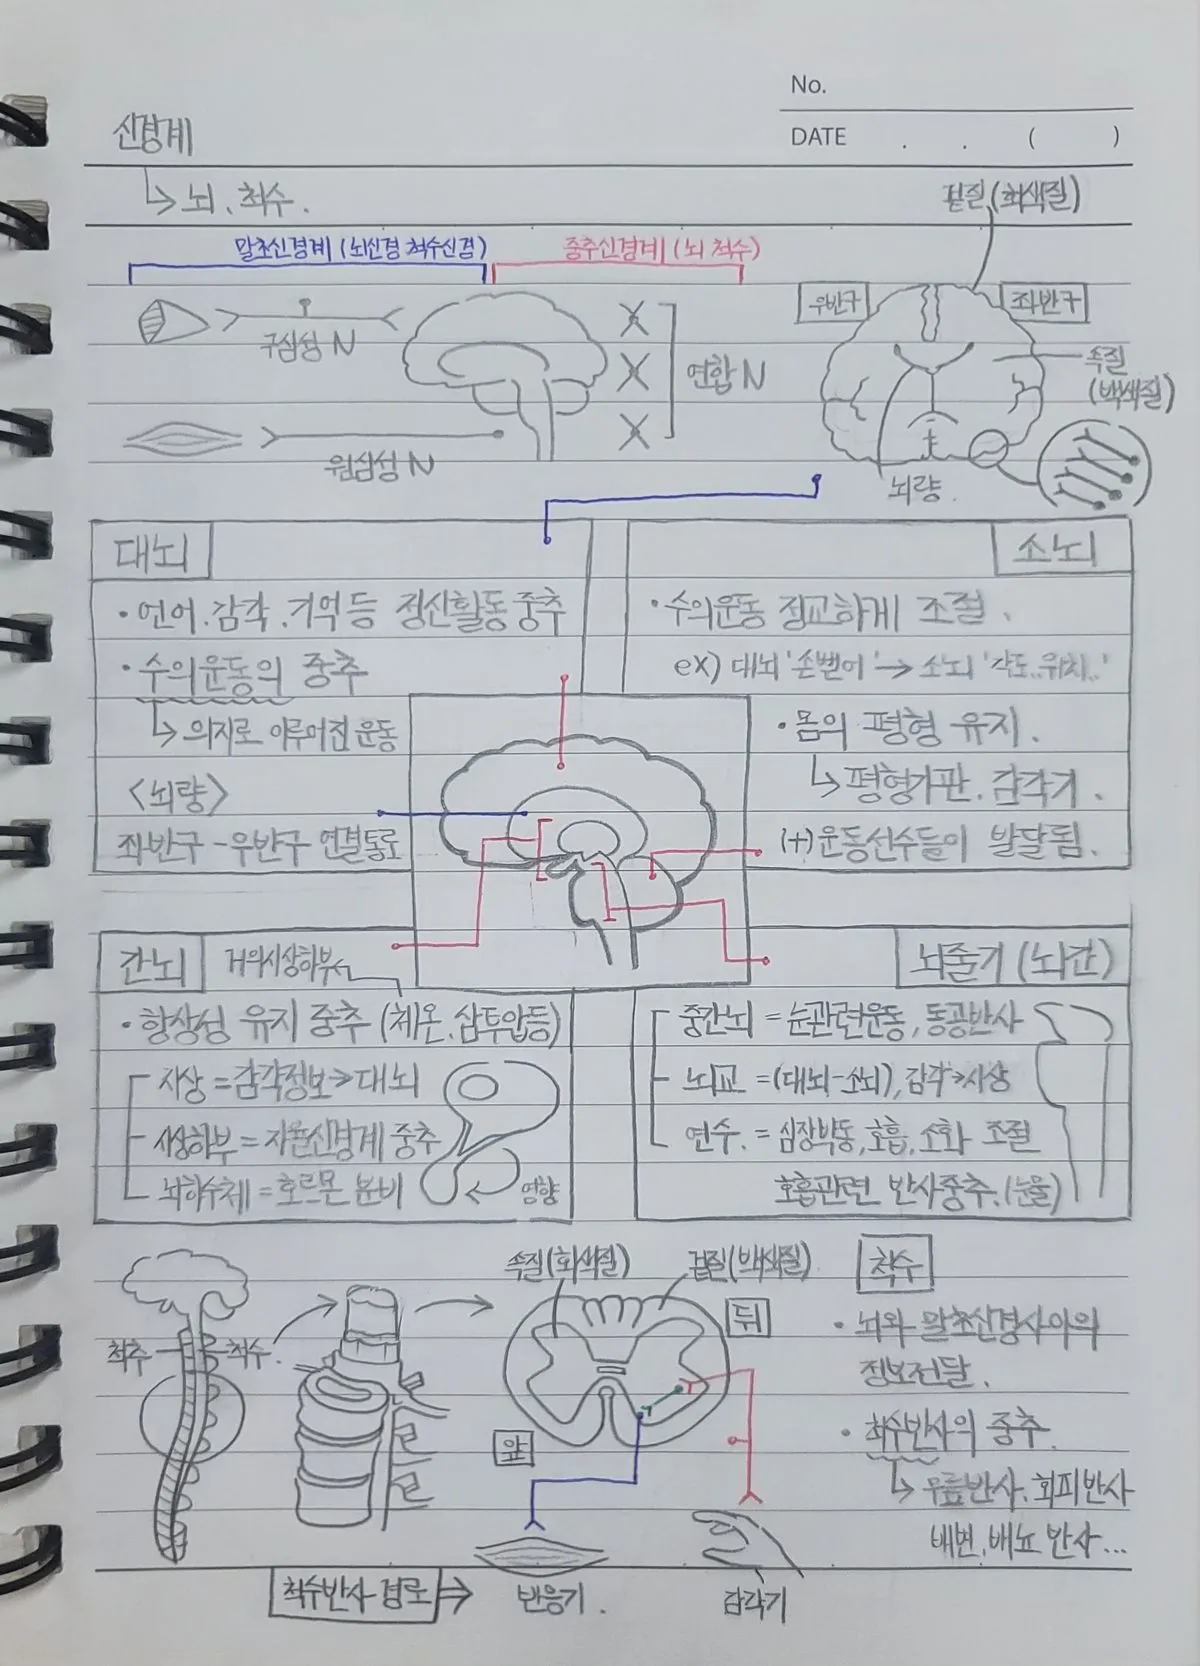 No.
DATE . . ( )
신경계
↳ 뇌. 척수.
겉질(회색질)
말초신경계 (뇌신경 척수신경)
중추신경계 (뇌 척수)
우반구
좌반구
구심성 N
연합 N
속질
(백색질)
원심성 N
뇌량.
대뇌
• 언어.감각.기억 등 정신활동 중추
• 수의운동의 중추
↳ 의지로 이루어진 운동
<뇌량>
좌반구-우반구 연결통로
소뇌
• 수의운동 정교하게 조절.
ex) 대뇌 '손뻗어' → 소뇌 '각도..위치..'
• 몸의 평형 유지.
↳ 평형기관.감각기.
(+)운동선수들이 발달됨.
간뇌
거의시상하부
• 항상성 유지 중추 (체온.삼투압등)
시상 = 감각정보→대뇌
시상하부 = 자율신경계 중추
뇌하수체 = 호르몬 분비
영향
뇌줄기 (뇌간)
중간뇌 = 눈관련운동, 동공반사
뇌교 = (대뇌-소뇌), 감각→시상
연수. = 심장박동, 호흡, 소화 조절
호흡관련 반사중추.(눈물)
속질(회색질)
겉질(백색질)
척추
척수.
뒤
앞
척수
• 뇌와 말초신경사이의
정보전달.
• 척수반사의 중추.
↳ 무릎반사.회피반사
배변.배뇨 반사...
척수반사 경로 ⇒
반응기.
감각기